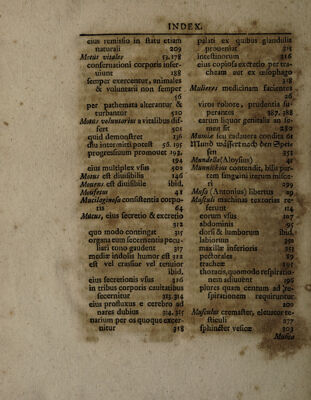 INDEX.
eius remissio in statu etiam
naturali 209
Motus vitales 53.178
conseruationi corporis inser-
uiunt 188
semper exercentur, animales
& voluntarii non semper
56
per pathemata alterantur &
turbantur 510
Motus voluntarius a vitalibus dif-
fert 501
quid demonstret 136
diu intermitti potest 56.195
progressiuum promouet 193.
194
eius multiplex vsus 502
Motus est diuisibilis 146
Mouens est diuisibile ibid.
Motiferus 42
Mucilaginosa consistentia corpo-
ris 64
Mucus, eius secretio & excretio
312
quo modo contingat 317
organa eum secernentia pecu-
liari tono gaudent 317
mediæ indolis humor est 312
est vel crassior vel tenuior
ibid.
eius secretionis vsus 316
in tribus corporis cauitatibus
secernitur 313.314
eius profluxus e cerebro ad
nares dubius 314.315
narium per os quoque excer-
nitur 318
palati ex quibus glandulis
proueniat 315
intestinorum 316
eius copiosa excretio per tra-
cheam aut ex œsophago
318
Mulieres medicinam facientes
26
viros robore, prudentia su-
perantes 387,388
earum liquor genitalis an se-
men sit 280
Mumia seu cadauera condita 61
Mund wässert nach den Speis
351
Mundella (Aloysius) 41
Munnichius contendit, bilis par-
tem sanguini iterum misce-
ri 299
Musa (Antonius) libertus 29
Musculi machinas textorias re-
ferunt 114
eorum vsus 107
abdominis 95
dorsi & lumborum ibid.
labiorum 350
maxillæ inferioris 351
pectorales 89
tracheæ 191
thoracis, quomodo respiratio-
nem adiuuent 196
plures quam centum ad re-
spirationem requiruntur
200
Musculus cremaster, eleuator te-
sticuli 277
sphincter vesicæ 303
Musica